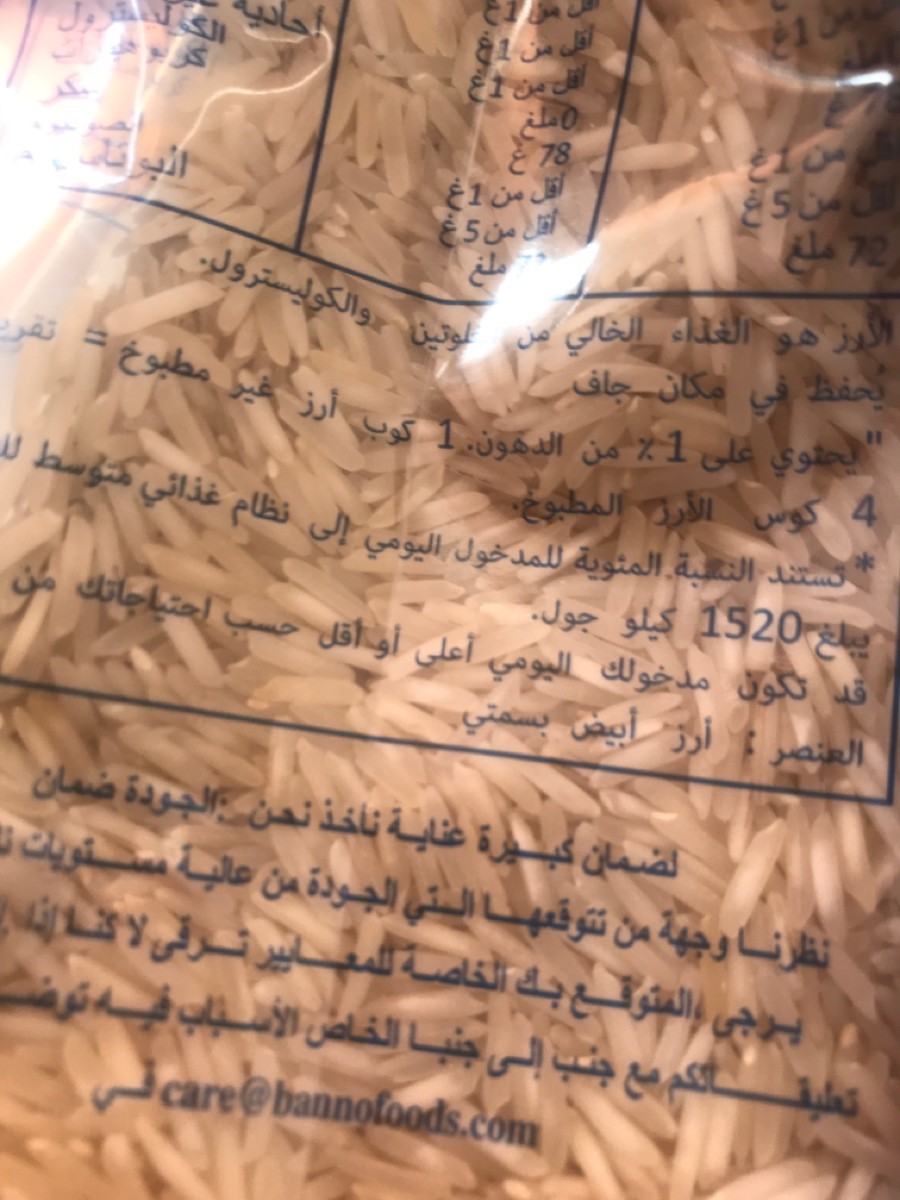 أحادية
الكوليسترول
سكر
أقل من 1غ
أقل من 1غ
أقل من 1غ
0ملغ
78 غ
أقل من 1غ
أقل من 5غ
ملغ
من 1غ
غ
من 1غ
أقل من 5غ
72 ملغ
الأرز هو الغذاء الخالي من والكوليسترول.
يُحفظ في مكان جاف
"يحتوي على 1٪ من الدهون. 1 كوب أرز غير مطبوخ =
4 كوس الأرز المطبوخ.
* تستند النسبة المئوية للمدخول اليومي إلى نظام غذائي متوسط
يبلغ 1520 كيلو جول.
قد تكون مدخولك اليومي أعلى أو أقل حسب احتياجاتك من
العنصر : أرز أبيض بسمتي
لضمان كبيرة عناية نأخذ نحن :الجودة ضمان
نظرنا وجهة من تتوقعها التي الجودة من عالية مستويات
يرجى ،المتوقع بك الخاصة للمعايير ترقى لا كنا إذا
تعليقاتكم مع جنب إلى جنبا الخاص الأسباب فيه
care@bannofoods.com في